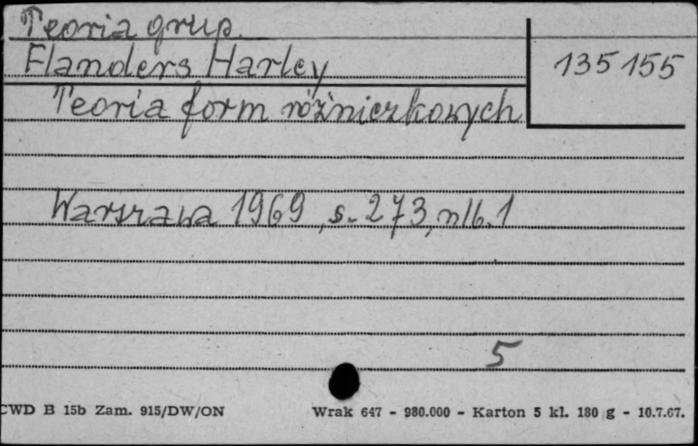 Teoria grup.
Flanders Harley
135155
Teoria form różniczkowych
Warszawa 1969, s. 273, nlb. 1
5
CWD B 15b Zam. 915/DW/ON
Wrak 647 - 980.000 - Karton 5 kl. 180 g - 10.7.67.